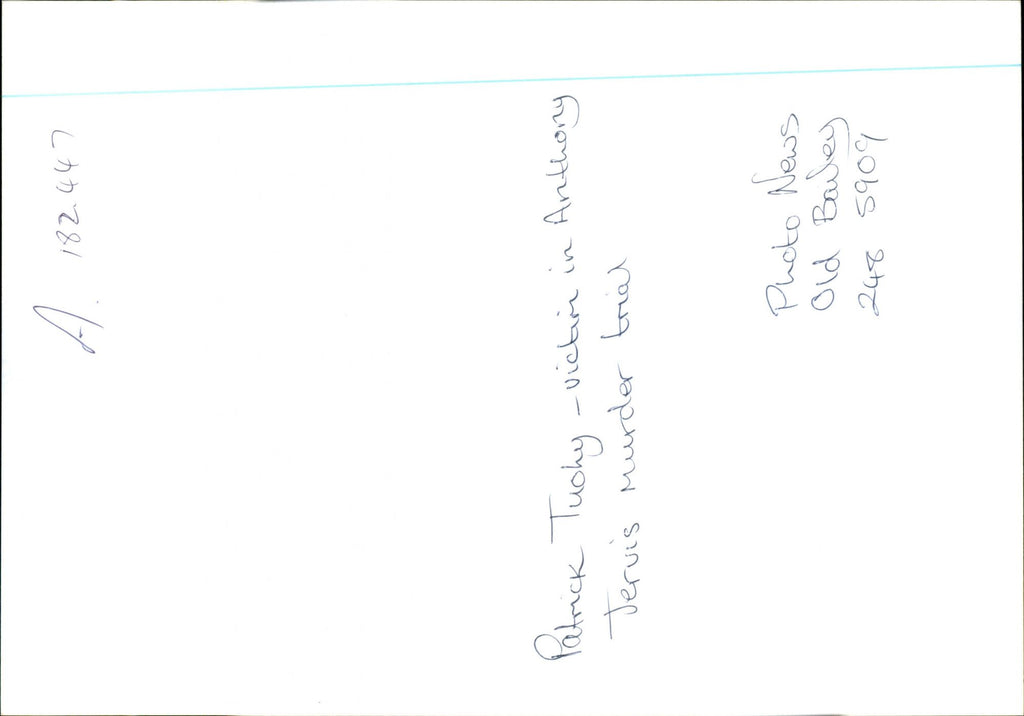 A. 182447
Patrick Tuohy - victim in Anthony
Jervis murder trial
Photo News
Old Bailey
248 5909